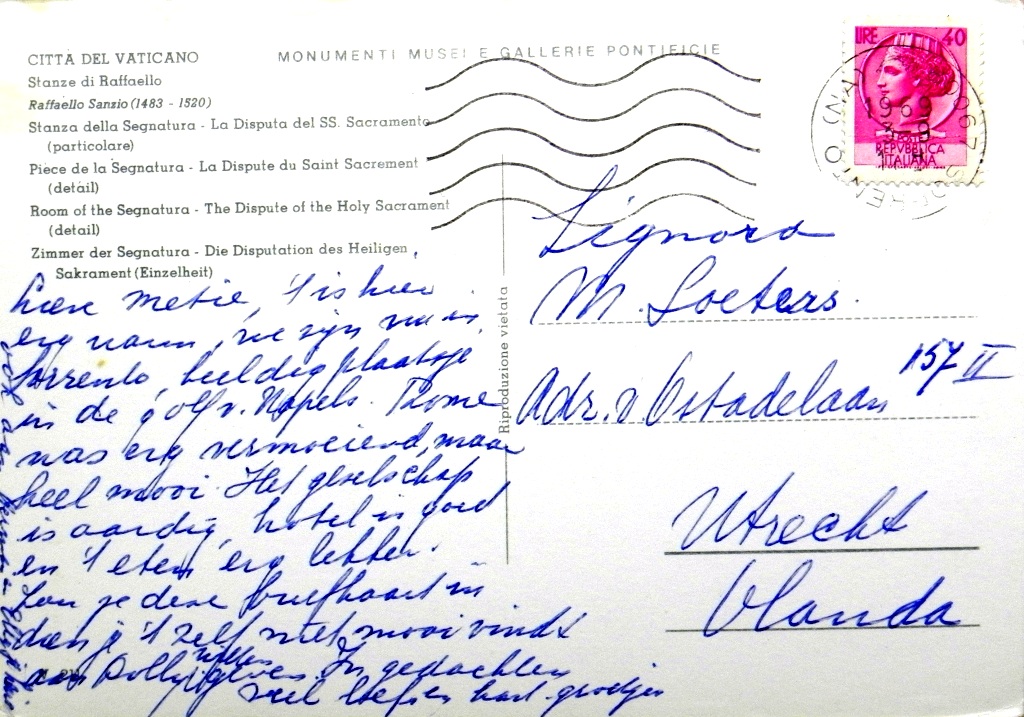 CITTÀ DEL VATICANO
Stanze di Raffaello
Raffaello Sanzio (1483 - 1520)
Stanza della Segnatura - La Disputa del SS. Sacramento
(particolare)
Pièce de la Segnatura - La Dispute du Saint Sacrement
(detail)
Room of the Segnatura - The Dispute of the Holy Sacrament
(detail)
Zimmer der Segnatura - Die Disputation des Heiligen
Sakrament (Einzelheit)
MONUMENTI MUSEI E GALLERIE PONTIFICIE
LIRE 40
1969
POSTE
REPVBBLICA
ITALIANA
Riproduzione vietata
Lieve Metie, 't is hier
erg warm, we zijn nu in
Sorrento, beeldig plaatsje
in de golf v. Napels. Rome
was erg vermoeiend, maar
heel mooi. Het gezelschap
is aardig, hotel is goed
en 't eten erg lekker.
Zou je deze briefkaart in
dien je 't zelf niet mooi vindt
aan Dolly willen geven. In gedachten
veel liefs en hart. groetjes
Signora
M. Soeters.
Adr. v Ostadelaan 157 II
Utrecht
Olanda